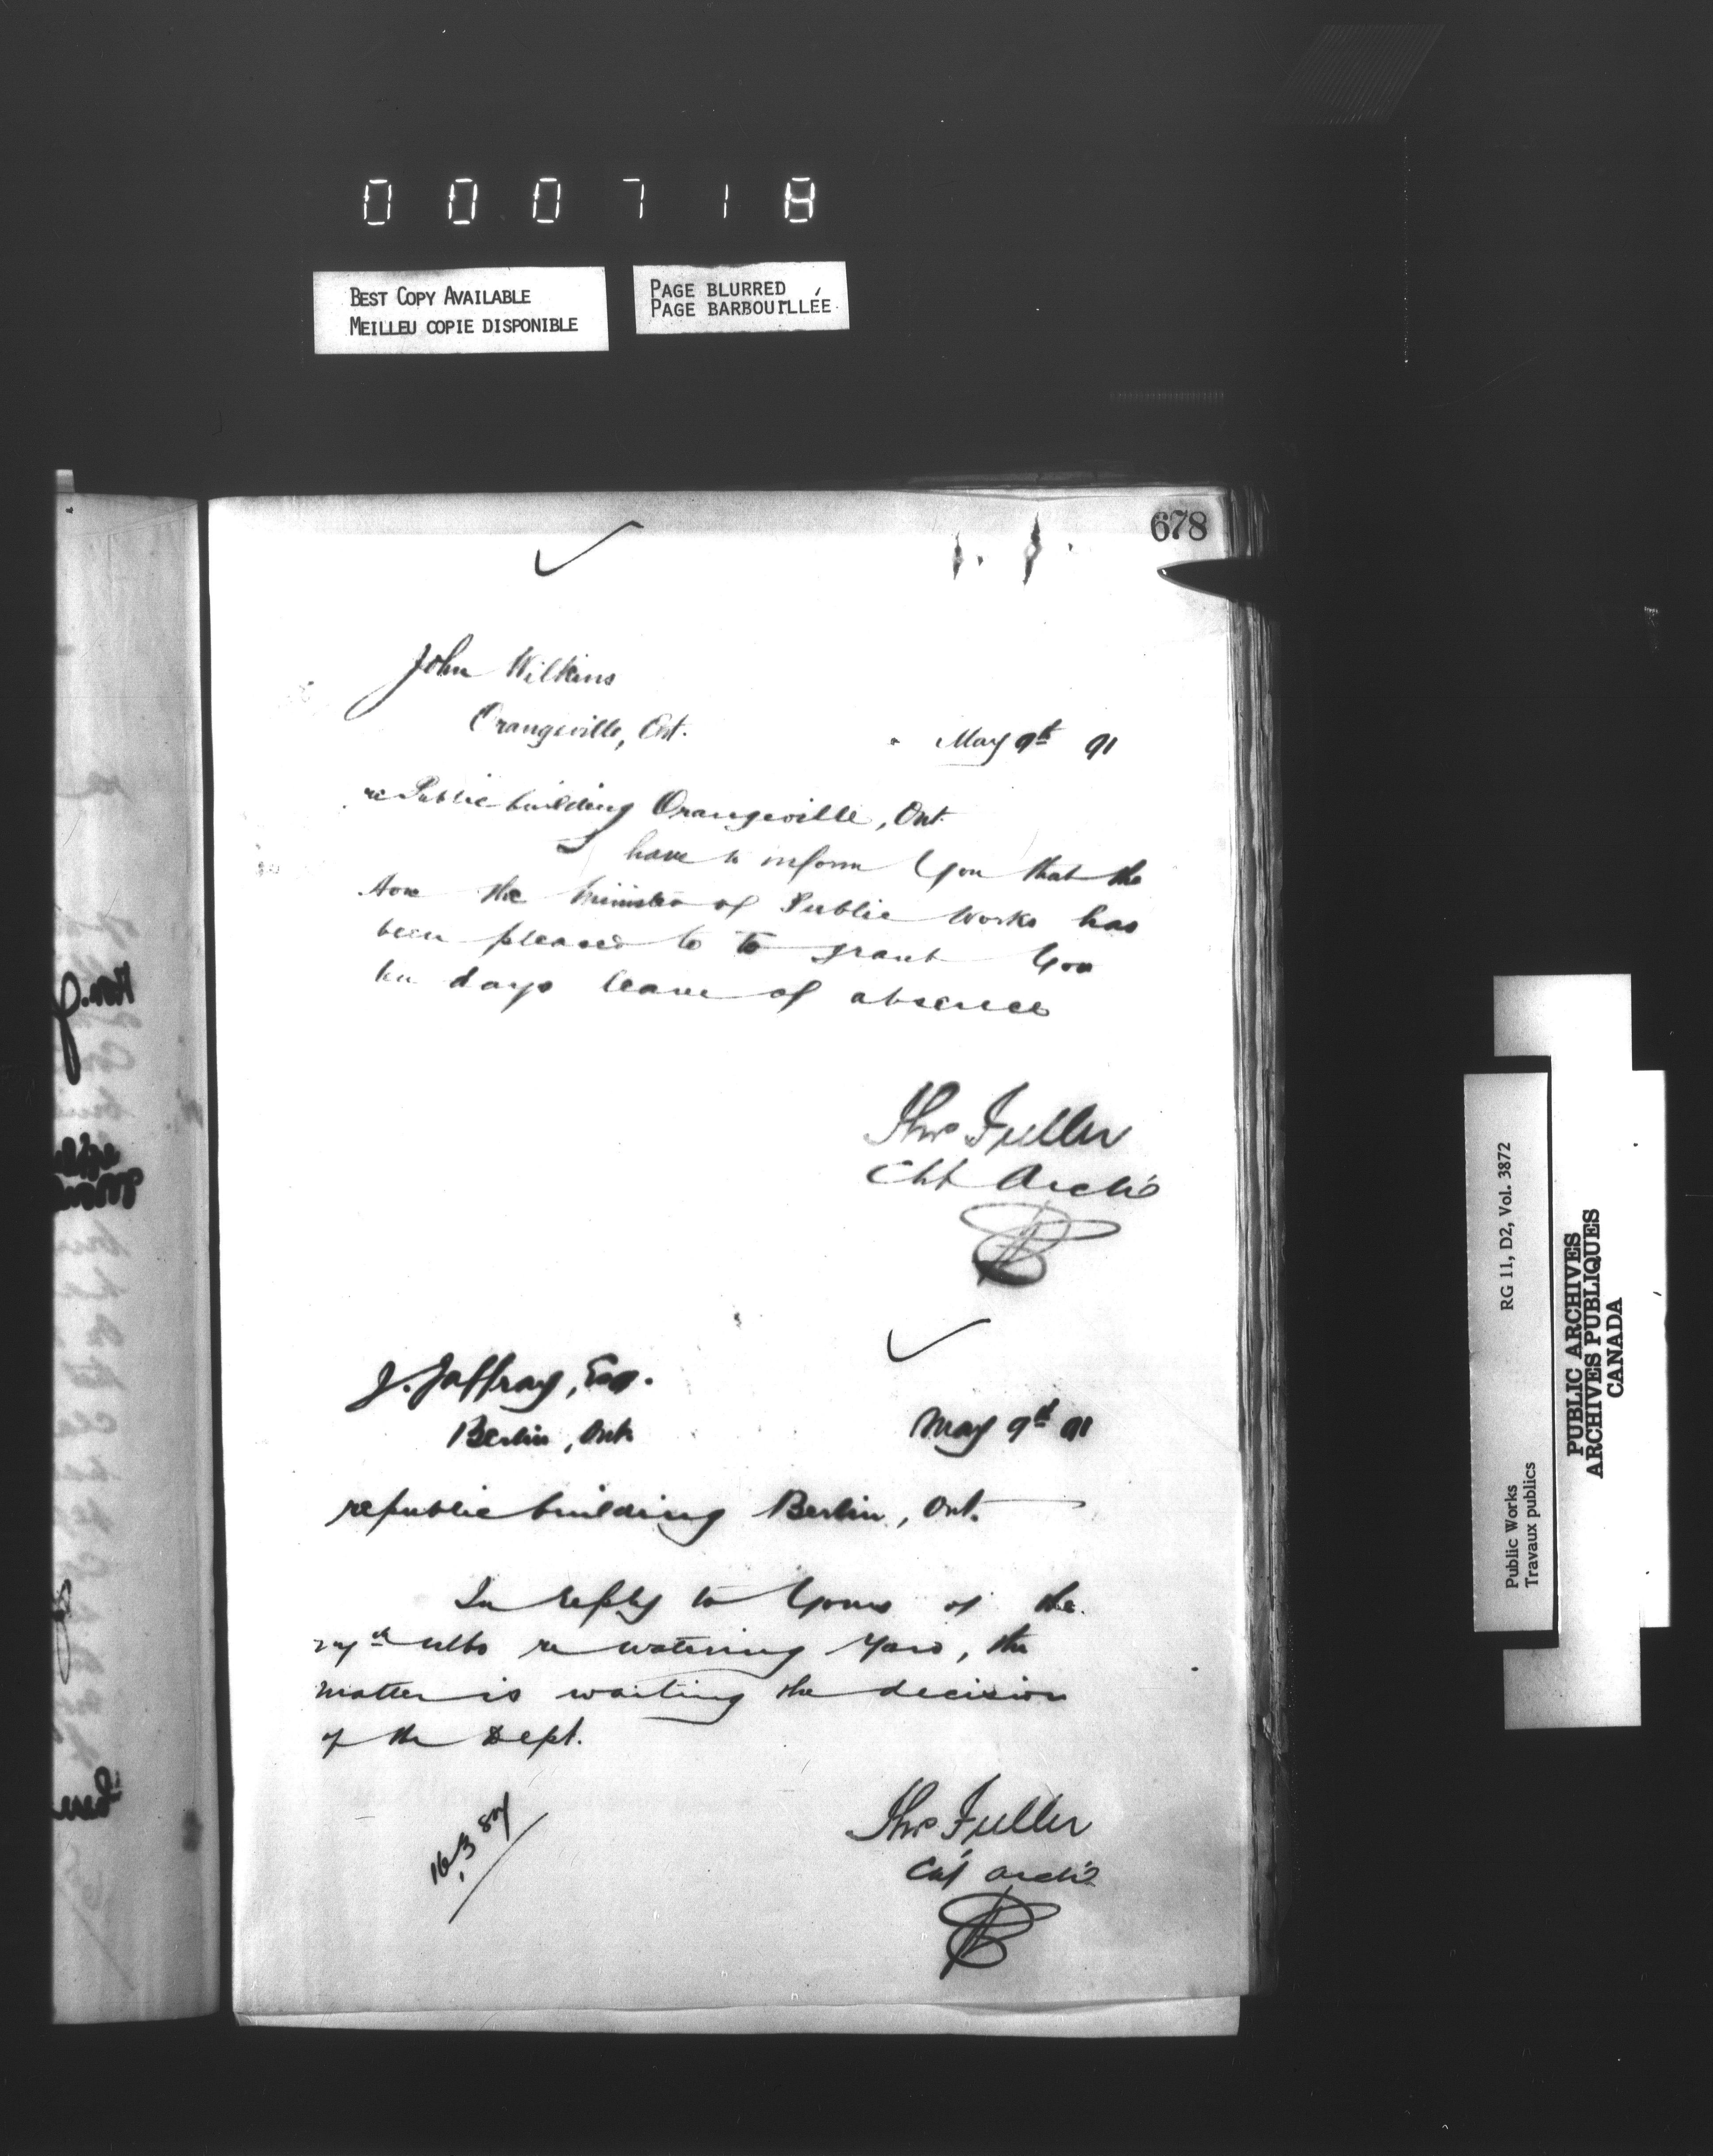 000718
BEST COPY AVAILABLE
MEILLEU COPIE DISPONIBLE
PAGE BLURRED
PAGE BARBOUILLÉE
678
John Wilkins
Orangeville, Ont.
May 9th 91
re Public building Orangeville, Ont.
I have to inform you that the
Hon the Minister of Public Works has
been pleased to to grant you
ten days leave of absence
Thos Fuller
Chf Archt
J. Jaffray, Esq.
Berlin, Ont.
May 9th 91
re public building Berlin, Ont.
In reply to yours of the
ulto re watering yard, the
matter is waiting the decision
of the Dept.
Thos Fuller
Chf Archt
Public Works
Travaux publics
RG 11, D2, Vol. 3872
PUBLIC ARCHIVES
ARCHIVES PUBLIQUES
CANADA